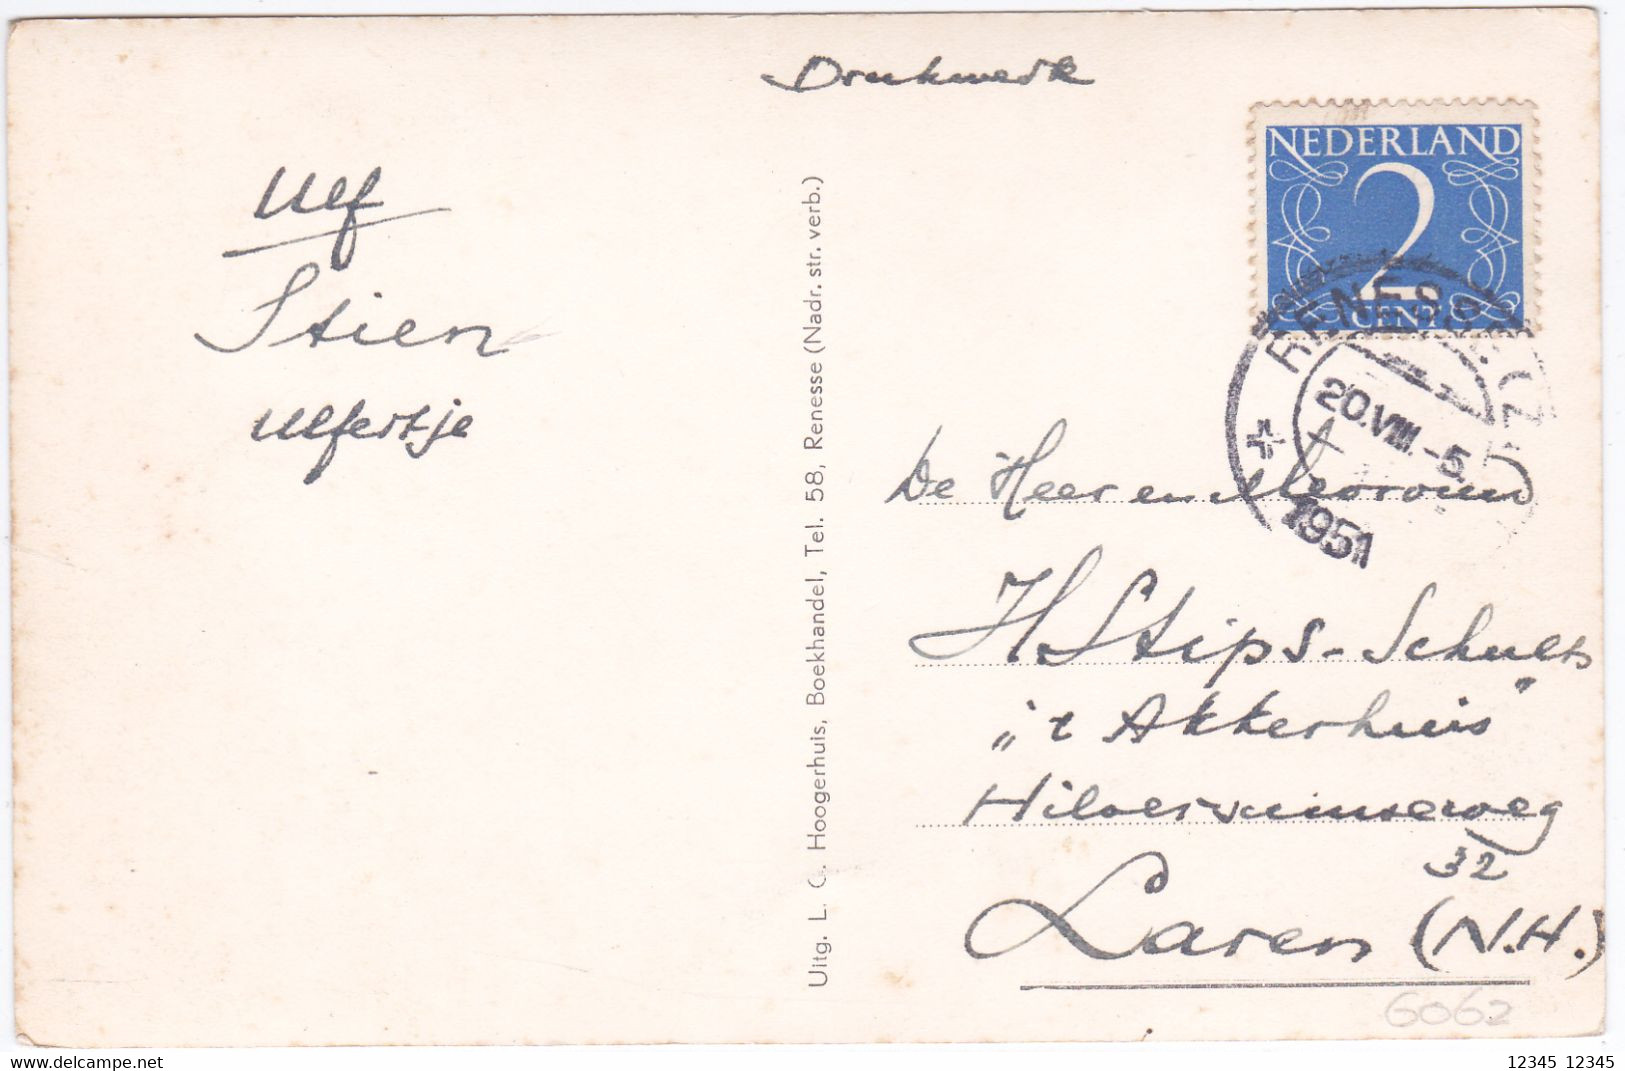 Drukwerk
Ulf
Stien
Ulfertje
Uitg. L. C. Hoogerhuis, Boekhandel, Tel. 58, Renesse (Nadr. str. verb.)
NEDERLAND
2
CENT
RENESSE
20.VIII.-5.
1951
De Heer en Mevrouw
H Stips-Schults
„'t Akkerhuis"
Hilversumseweg
32
Laren (N.H.)
6062
www.delcampe.net
12345 12345